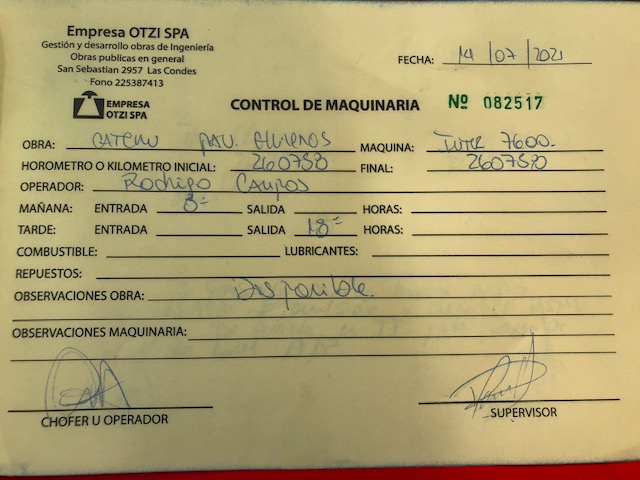 Empresa OTZI SPA
Gestión y desarrollo obras de Ingeniería
Obras publicas en general
San Sebastian 2957 Las Condes
Fono 225387413
EMPRESA
OTZI SPA
FECHA: 14 / 07 / 2021
CONTROL DE MAQUINARIA Nº 082517
OBRA: MAQUINA: 7600.
HOROMETRO O KILOMETRO INICIAL: 260780 FINAL: 260780
OPERADOR: Rodrigo Campos
MAÑANA: ENTRADA 8 SALIDA HORAS:
TARDE: ENTRADA SALIDA 18 HORAS:
COMBUSTIBLE: LUBRICANTES:
REPUESTOS:
OBSERVACIONES OBRA: Disponible.
OBSERVACIONES MAQUINARIA:
CHOFER U OPERADOR SUPERVISOR